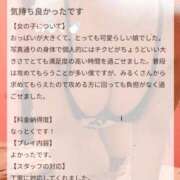 気持ち良かったです
【女の子について】
おっぱいが大きくて、とっても可愛らしい娘でした。
写真通りの身体で個人的にはチクビがちょうどいい大
きさでとても満足度の高い時間を過ごせました。普段
は攻めてもらうことが多い僕ですが、みるくさんから
求めてもらえたので攻める方に回っても負担がなく過
ごせました。
【料金納得度】
なっとくです！
【プレイ内容】
よかったです。
【スタッフの対応】
丁寧に対応してくれました。